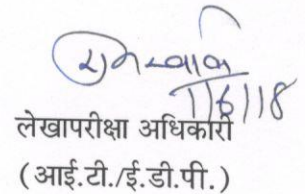 1/6/18
लेखापरीक्षा अधिकारी
(आई.टी./ई.डी.पी.)